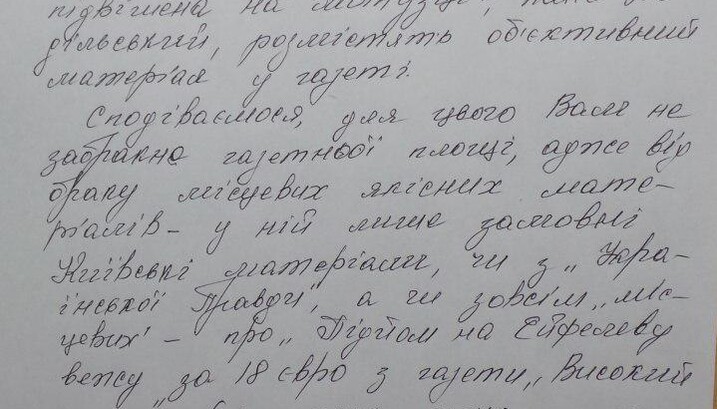 підвішена на мотузці,
дільський, розмістять об'єктивний
матеріал у газеті.
Сподіваємося, для цього Вам не
забракне газетної площі, адже від
браку місцевих якісних мате-
ріалів – у ній лише замовні
Київські матеріали, чи з „Укра-
їнської Правди", а чи зовсім „міс-
цевих" – про „Підйом на Ейфелеву
вежу" за 18 євро з газети „Високий